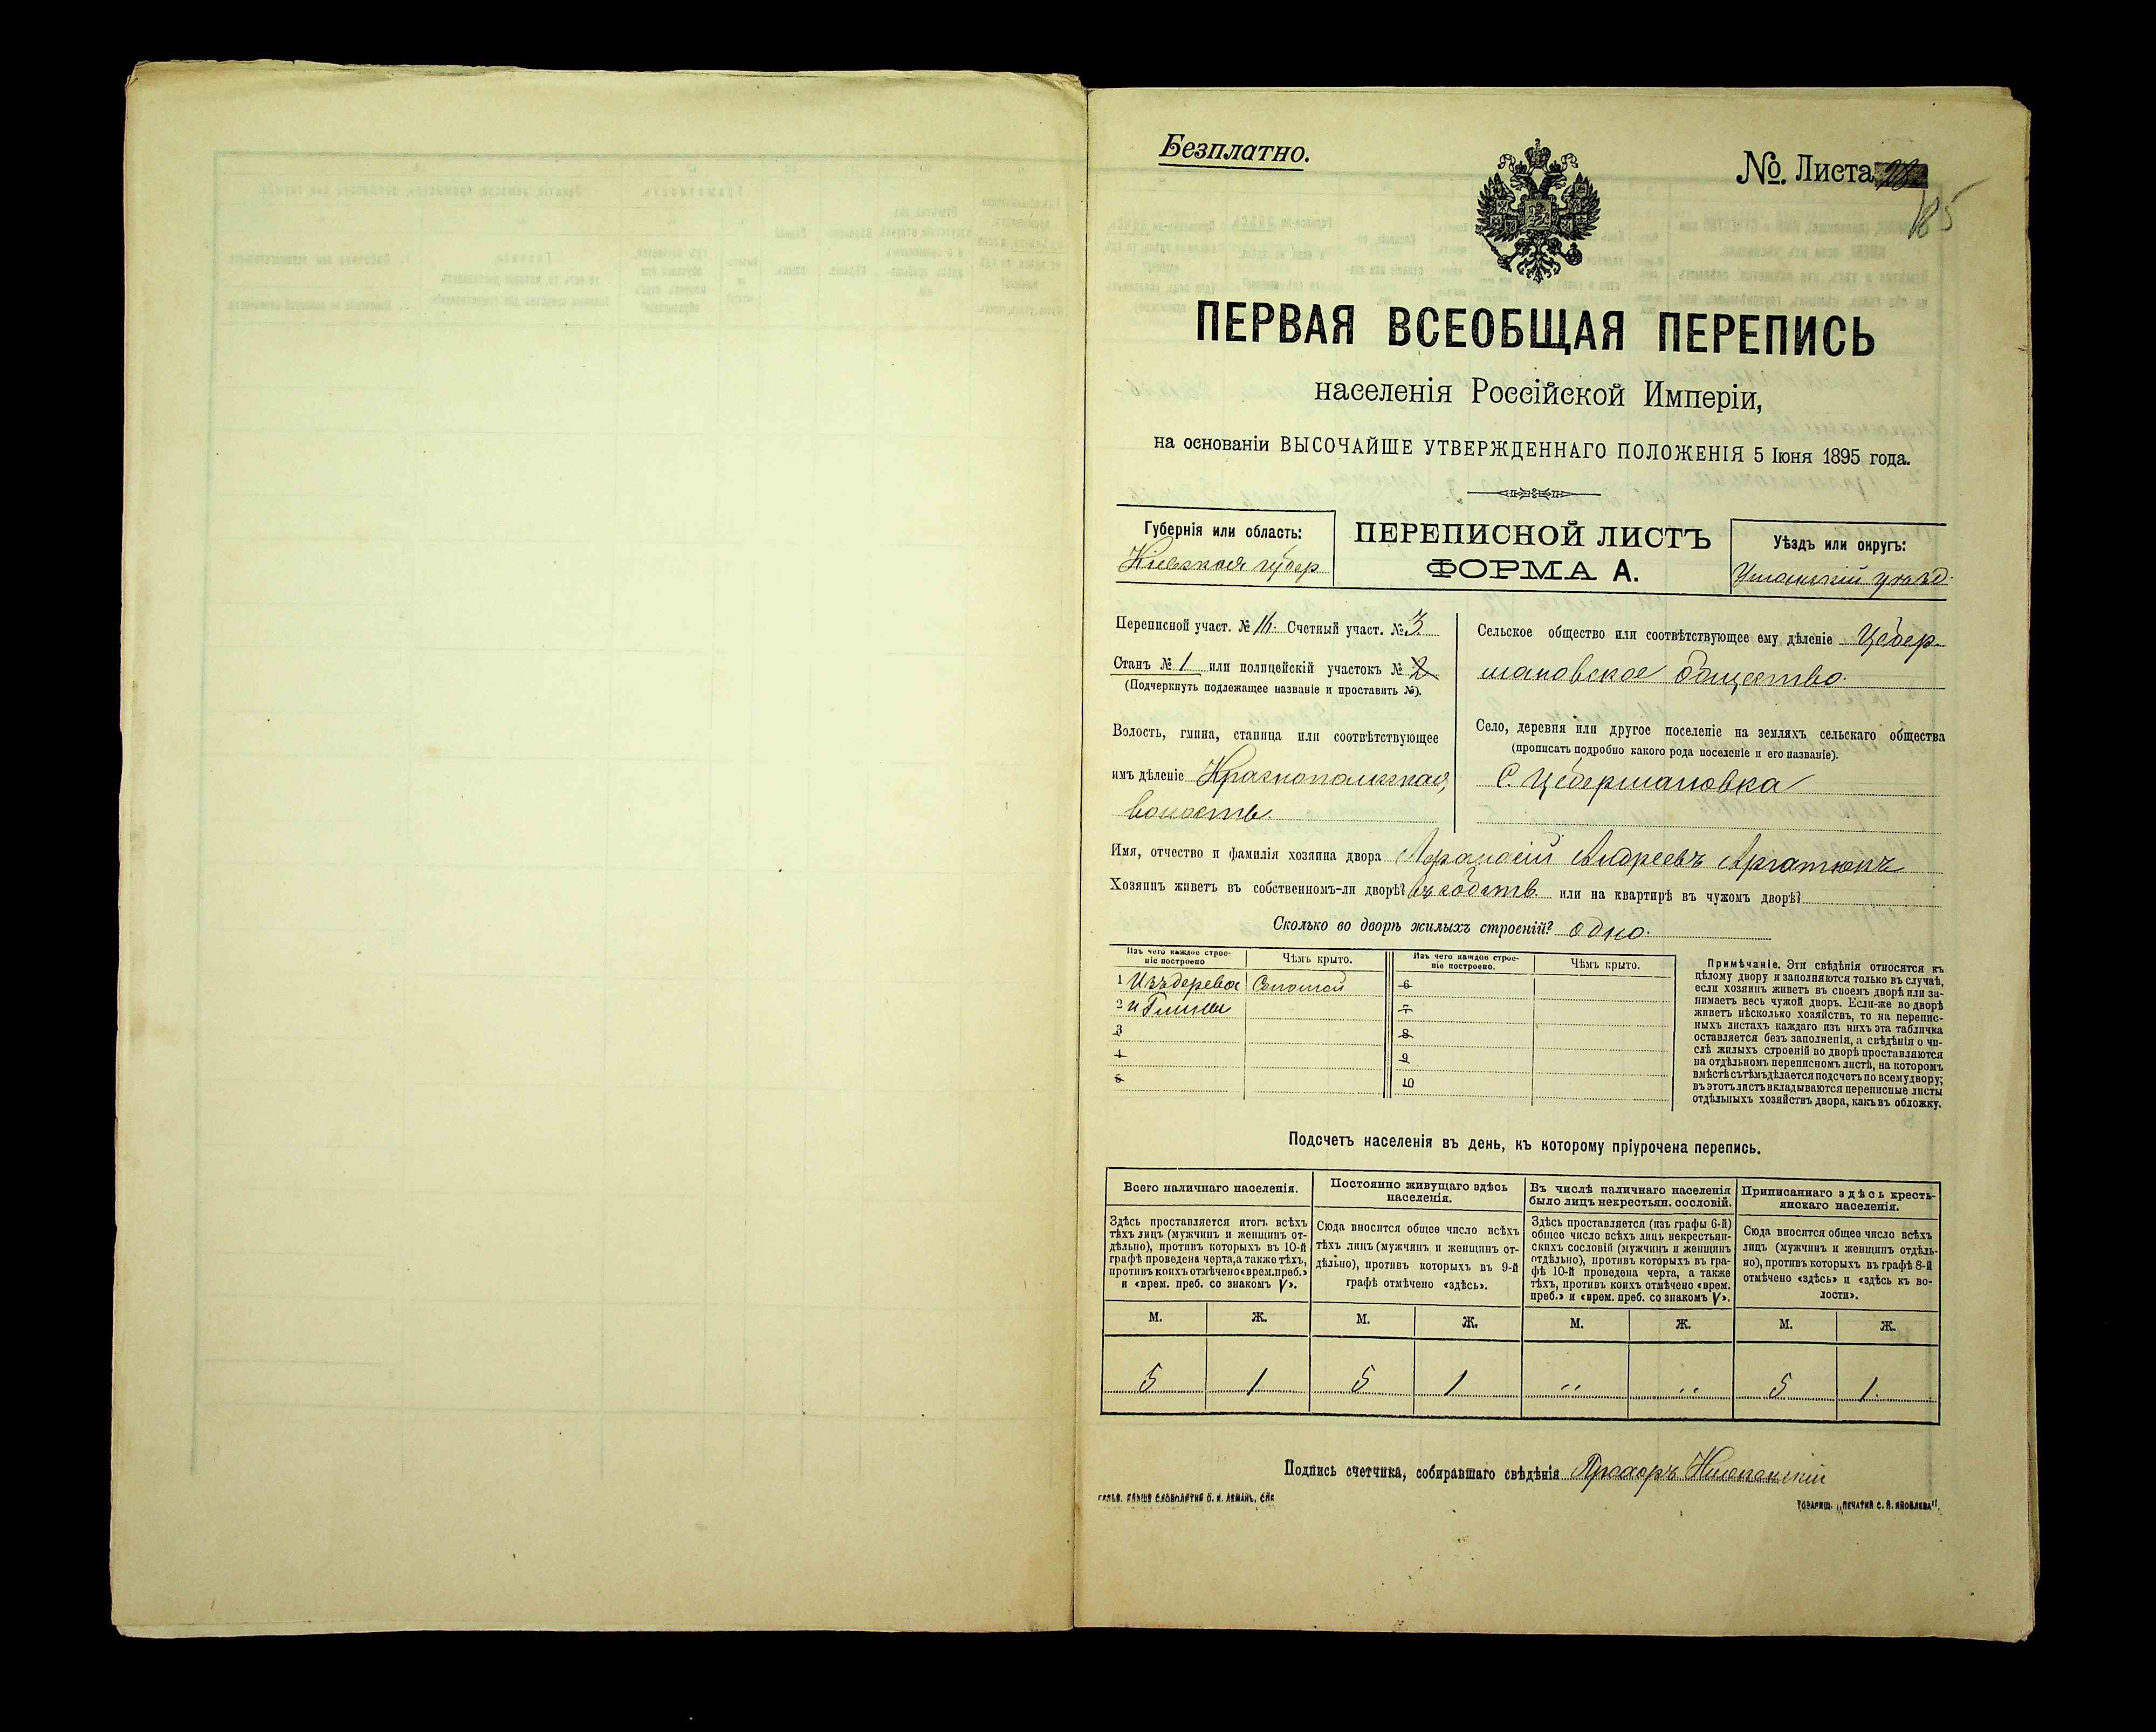 Безплатно.
№. Листа
185
ПЕРВАЯ ВСЕОБЩАЯ ПЕРЕПИСЬ
населенія Россійской Имперіи,
на основаніи ВЫСОЧАЙШЕ УТВЕРЖДЕННАГО ПОЛОЖЕНІЯ 5 Іюня 1895 года.
Губернія или область:
Кіевская губер
ПЕРЕПИСНОЙ ЛИСТЪ
ФОРМА А.
Уѣздъ или округъ:
Уманскій уѣзд.
Переписной участ. № 16. Счетный участ. № 3.
Станъ № 1 или полицейскій участокъ № 2
(Подчеркнуть подлежащее названіе и проставить №).
Волость, гмина, станица или соотвѣтствующее
имъ дѣленіе Краснопольская,
волость.
Сельское общество или соотвѣтствующее ему дѣленіе Цебер-
мановское общество.
Село, деревня или другое поселеніе на земляхъ сельскаго общества
(прописать подробно какого рода поселеніе и его названіе).
С. Цебермановка
Имя, отчество и фамилія хозяина двора Афанасій Андреевъ Аргатюкъ
Хозяинъ живетъ въ собственномъ-ли дворѣ? въ собств. или на квартирѣ въ чужомъ дворѣ?
Сколько во дворѣ жилыхъ строеній? одно.
Изъ чего каждое строе-
ніе построено
Чѣмъ крыто.
Изъ чего каждое строе-
ніе построено.
Чѣмъ крыто.
1 Изъ дерева Соломой
2 и Глины
3
4
5
6
7
8
9
10
Примѣчаніе. Эти свѣдѣнія относятся къ
цѣлому двору и заполняются только въ случаѣ,
если хозяинъ живетъ въ своемъ дворѣ или за-
нимаетъ весь чужой дворъ. Если-же во дворѣ
живетъ нѣсколько хозяйствъ, то на перепис-
ныхъ листахъ каждаго изъ нихъ эта табличка
оставляется безъ заполненія, а свѣдѣнія о чи-
слѣ жилыхъ строеній во дворѣ проставляются
на отдѣльномъ переписномъ листѣ, на которомъ
вмѣстѣ съ тѣмъ дѣлается подсчетъ по всему двору;
въ этотъ листъ вкладываются переписные листы
отдѣльныхъ хозяйствъ двора, какъ въ обложку.
Подсчетъ населенія въ день, къ которому пріурочена перепись.
Всего наличнаго населенія.
Здѣсь проставляется итогъ всѣхъ
тѣхъ лицъ (мужчинъ и женщинъ от-
дѣльно), противъ которыхъ въ 10-й
графѣ проведена черта, а также тѣхъ,
противъ коихъ отмѣчено «врем. преб.»
и «врем. преб. со знакомъ V».
Постоянно живущаго здѣсь
населенія.
Сюда вносится общее число всѣхъ
тѣхъ лицъ (мужчинъ и женщинъ от-
дѣльно), противъ которыхъ въ 9-й
графѣ отмѣчено «здѣсь».
Въ числѣ наличнаго населенія
было лицъ некрестьян. сословій.
Здѣсь проставляется (изъ графы 6-й)
общее число всѣхъ лицъ некрестьян-
скихъ сословій (мужчинъ и женщинъ
отдѣльно), противъ которыхъ въ гра-
фѣ 10-й проведена черта, а также
тѣхъ, противъ коихъ отмѣчено «врем.
преб.» и «врем. преб. со знакомъ V».
Приписаннаго здѣсь кресть-
янскаго населенія.
Сюда вносится общее число всѣхъ
лицъ (мужчинъ и женщинъ отдѣль-
но), противъ которыхъ въ графѣ 8-й
отмѣчено «здѣсь» и «здѣсь къ во-
лости».
М. Ж. М. Ж. М. Ж. М. Ж.
5 1 5 1 „ „ 5 1.
Подпись счетчика, собиравшаго свѣдѣнія Прохоръ
ТОВАРИЩ. „ПЕЧАТНЯ С. П. ЯКОВЛЕВА".